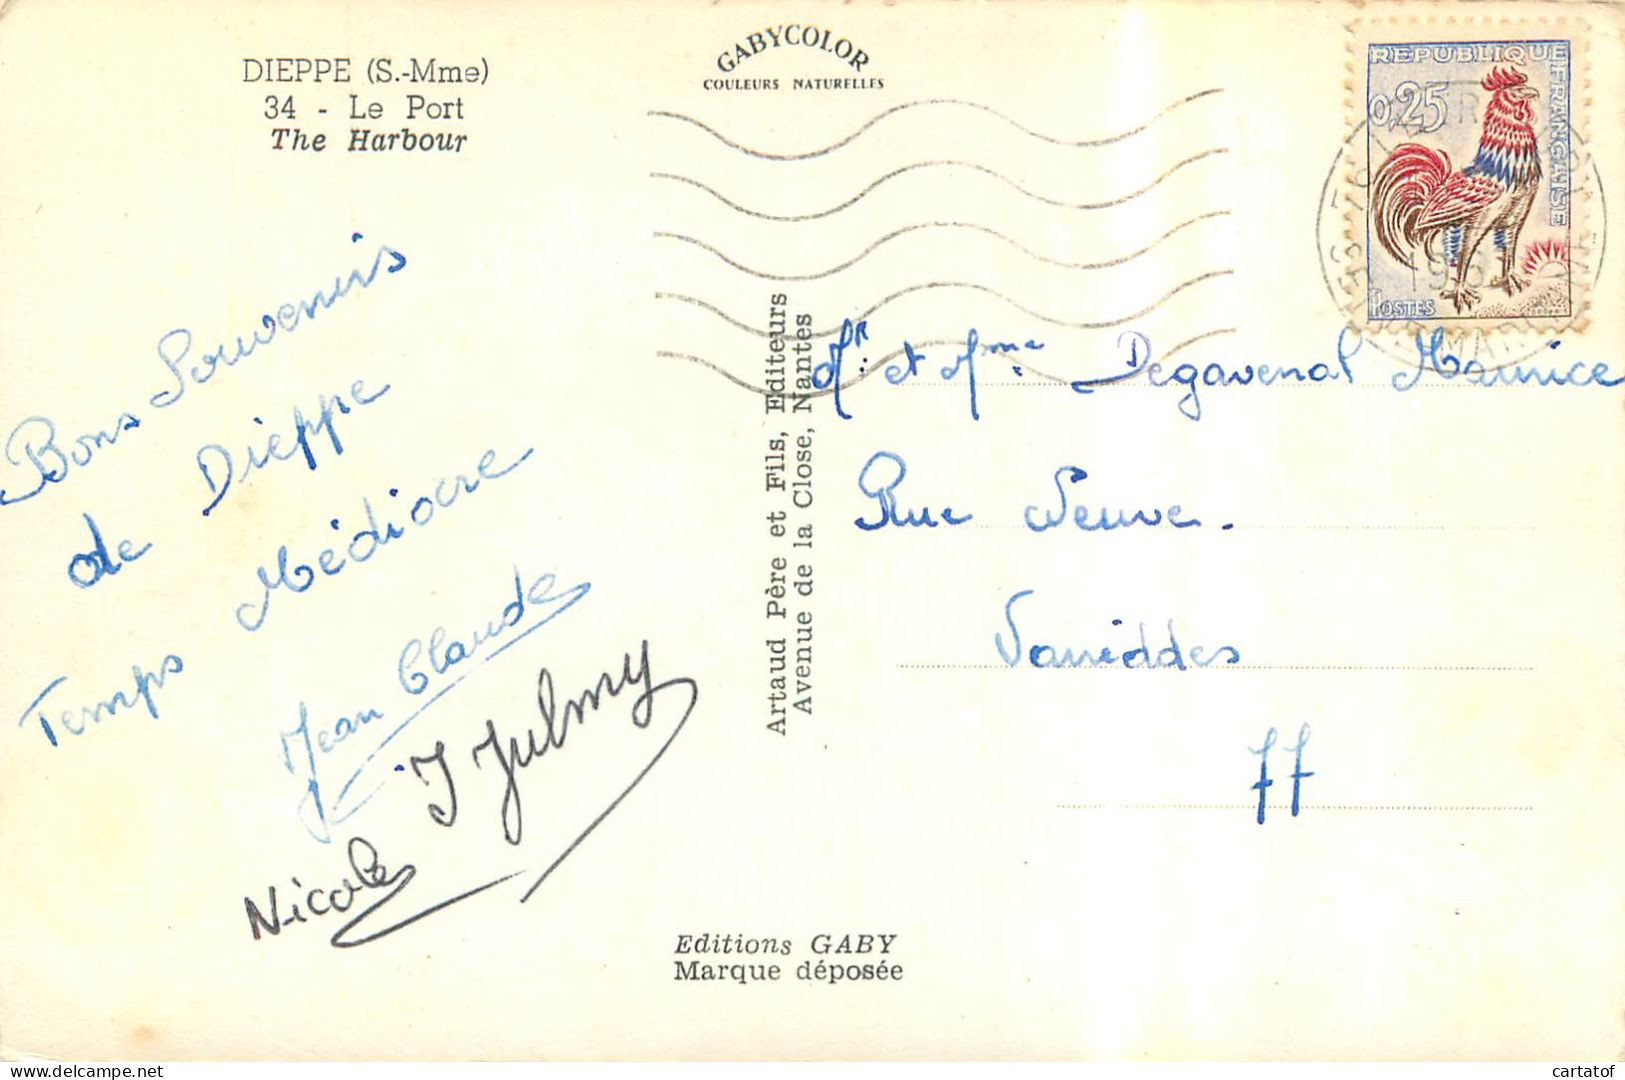 DIEPPE (S.-Mme)
34 - Le Port
The Harbour
GABYCOLOR
COULEURS NATURELLES
REPUBLIQUE FRANÇAISE
0,25
POSTES
Bons Souvenirs
de Dieppe
Temps Médiocre
Jean Claude
J Julmy
Nicole
Artaud Père et Fils, Editeurs
Avenue de la Close, Nantes
Mr et Mme Degavenal Maurice
Rue Neuve.
77
Editions GABY
Marque déposée
delcampe.net
cartatof